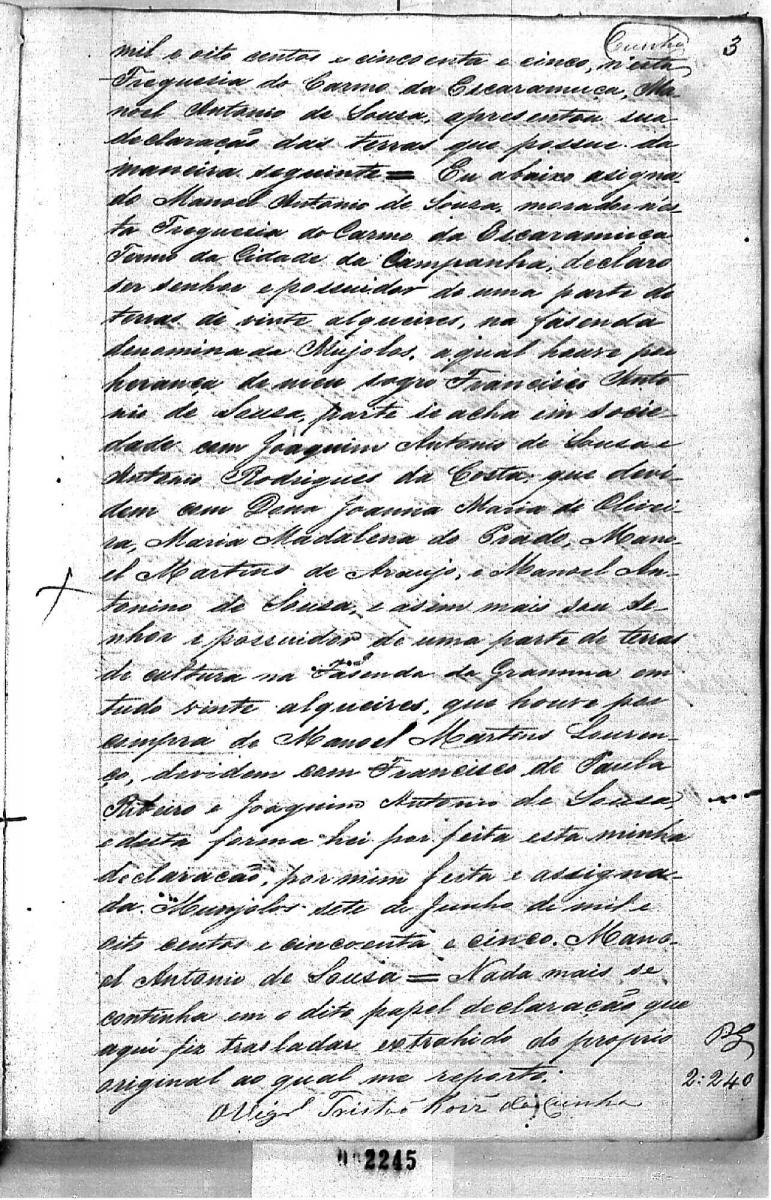 Cunha 3
mil e oito centos e cincoenta e cinco, n'esta
Freguesia do Carmo da Escaramuca, Ma-
noel Antonio de Sousa, apresentou sua
declaração das terras que possue da
maneira seguinte = Eu abaixo asigna-
do Manoel Antonio de Souza, morador n'es-
ta Freguesia do Carmo da Escaramuca
Termo da Cidade da Campanha, declaro
ser senhor e possuidor de uma parte de
terras de vinte alqueires, na fasenda
denominada Mujolos, a qual houve por
herança de meu sogro Francisco Anto-
nio de Sousa, parte se acha em socie-
dade com Joaquim Antonio de Sousa e
Antonio Rodrigues da Costa, que devi-
dem com Dona Joanna Maria de Olivei-
ra, Maria Madalena do Prado, Mano-
el Martins de Araujo, e Manoel An-
tonino de Sousa, e asim mais sou se-
nhor e possuidor de uma parte de terras
de cultura na Fasenda da Gramma em
tudo vinte alqueires, que houve por
compra de Manoel Martins Louren-
ço, devidem com Francisco de Paula
Ribeiro e Joaquim Antonio de Sousa,
e desta forma hei por feita esta minha
declaração, por mim feita e assigna-
da. Munjolos sete de Junho de mil e
oito centos e cincoenta e cinco. Mano-
el Antonio de Sousa = Nada mais se
continha em o dito papel declaração que
aqui fiz trasladar extrahido do proprio
original ao qual me reporto.
2:240
O Vigº Tristº Roiz da Cunha
2245